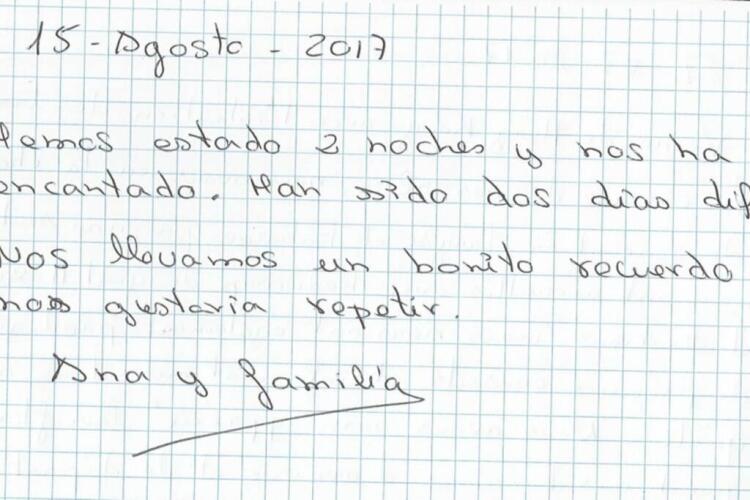 15 - Agosto - 2017
Hemos estado 2 noches y nos ha
encantado. Han sido dos días dif
Nos llevamos un bonito recuerdo
nos gustaria repetir.
Ana y familia